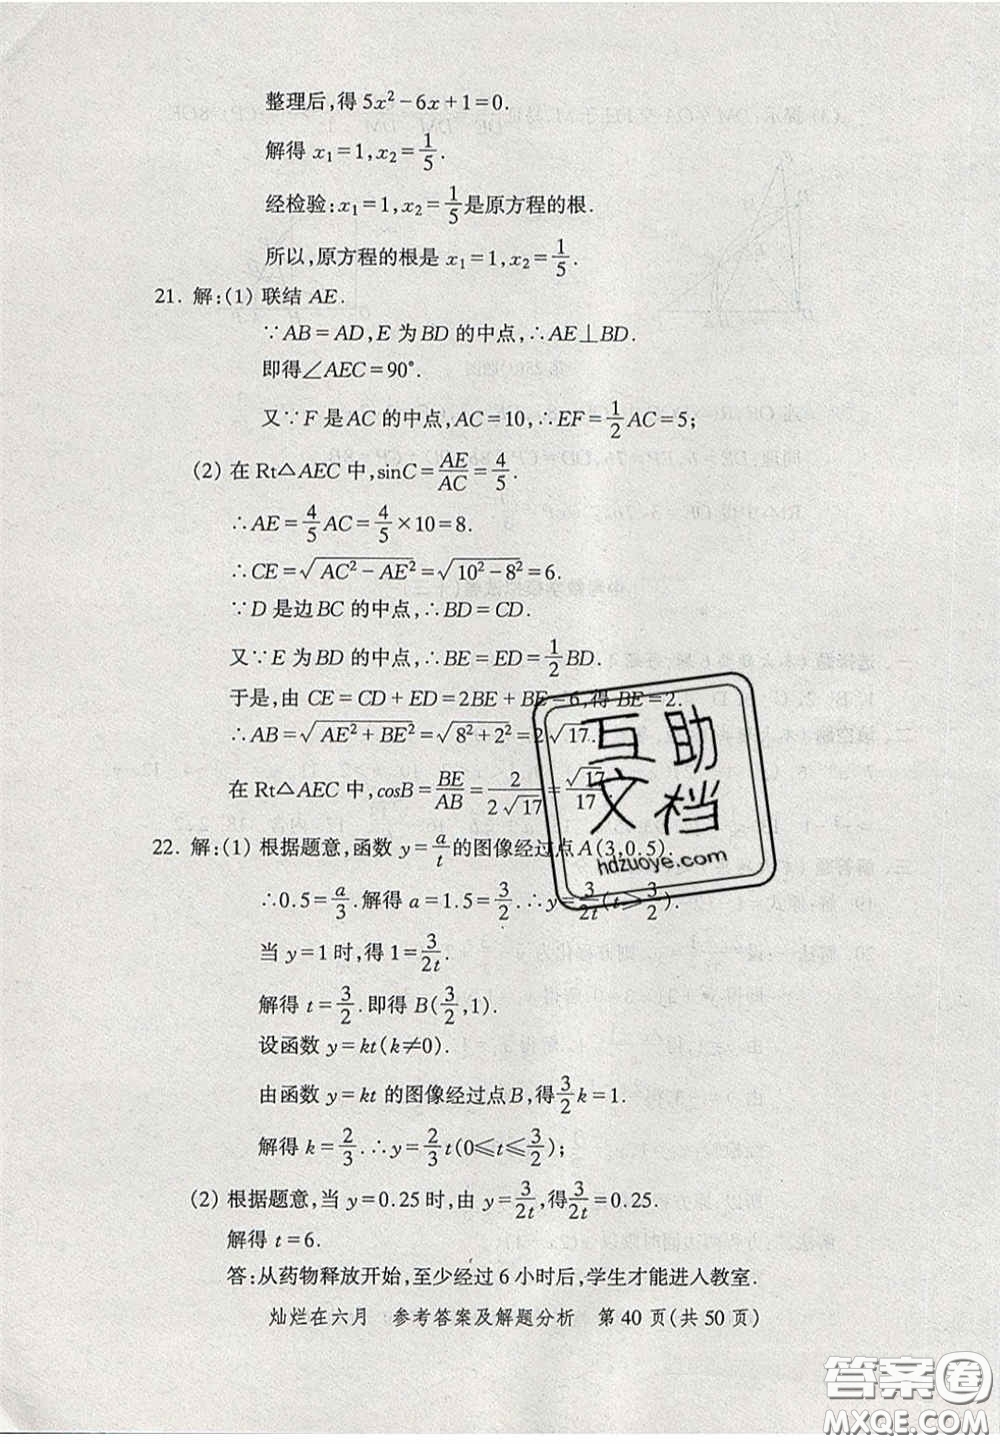 整理后,得 5x²-6x+1=0.
解得 x₁=1,x₂=1/5.
经检验:x₁=1,x₂=1/5是原方程的根.
所以,原方程的根是 x₁=1,x₂=1/5.
21. 解:(1) 联结 AE.
∵AB=AD,E 为BD 的中点,∴AE⊥BD.
即得∠AEC=90°.
又∵F 是AC 的中点,AC=10,∴EF=1/2AC=5;
(2) 在 Rt△AEC 中,sinC=AE/AC=4/5.
∴AE=4/5AC=4/5×10=8.
∴CE=√(AC²-AE²)=√(10²-8²)=6.
∵D 是边BC 的中点,∴BD=CD.
又∵E 为BD 的中点,∴BE=ED=1/2BD.
于是,由 CE=CD+ED=2BE+BE=6,得 BE=2.
∴AB=√(AE²+BE²)=√(8²+2²)=2√17.
在 Rt△AEC 中,cosB=BE/AB=2/(2√17)=√17/17.
22. 解:(1) 根据题意,函数 y=a/t的图像经过点A(3,0.5).
∴0.5=a/3.解得 a=1.5=3/2.∴y=3/2t(t≥3/2).
当 y=1时,得 1=3/2t.
解得 t=3/2.即得 B(3/2,1).
设函数 y=kt(k≠0).
由函数 y=kt 的图像经过点B,得3/2k=1.
解得 k=2/3.∴y=2/3t(0≤t≤3/2);
(2) 根据题意,当 y=0.25 时,由 y=3/2t,得3/2t=0.25.
解得 t=6.
答:从药物释放开始,至少经过 6 小时后,学生才能进入教室.
灿烂在六月·参考答案及解题分析 第 40 页(共 50 页)
互助
文档
hdzuoye.com
答案圈
MXQE.COM